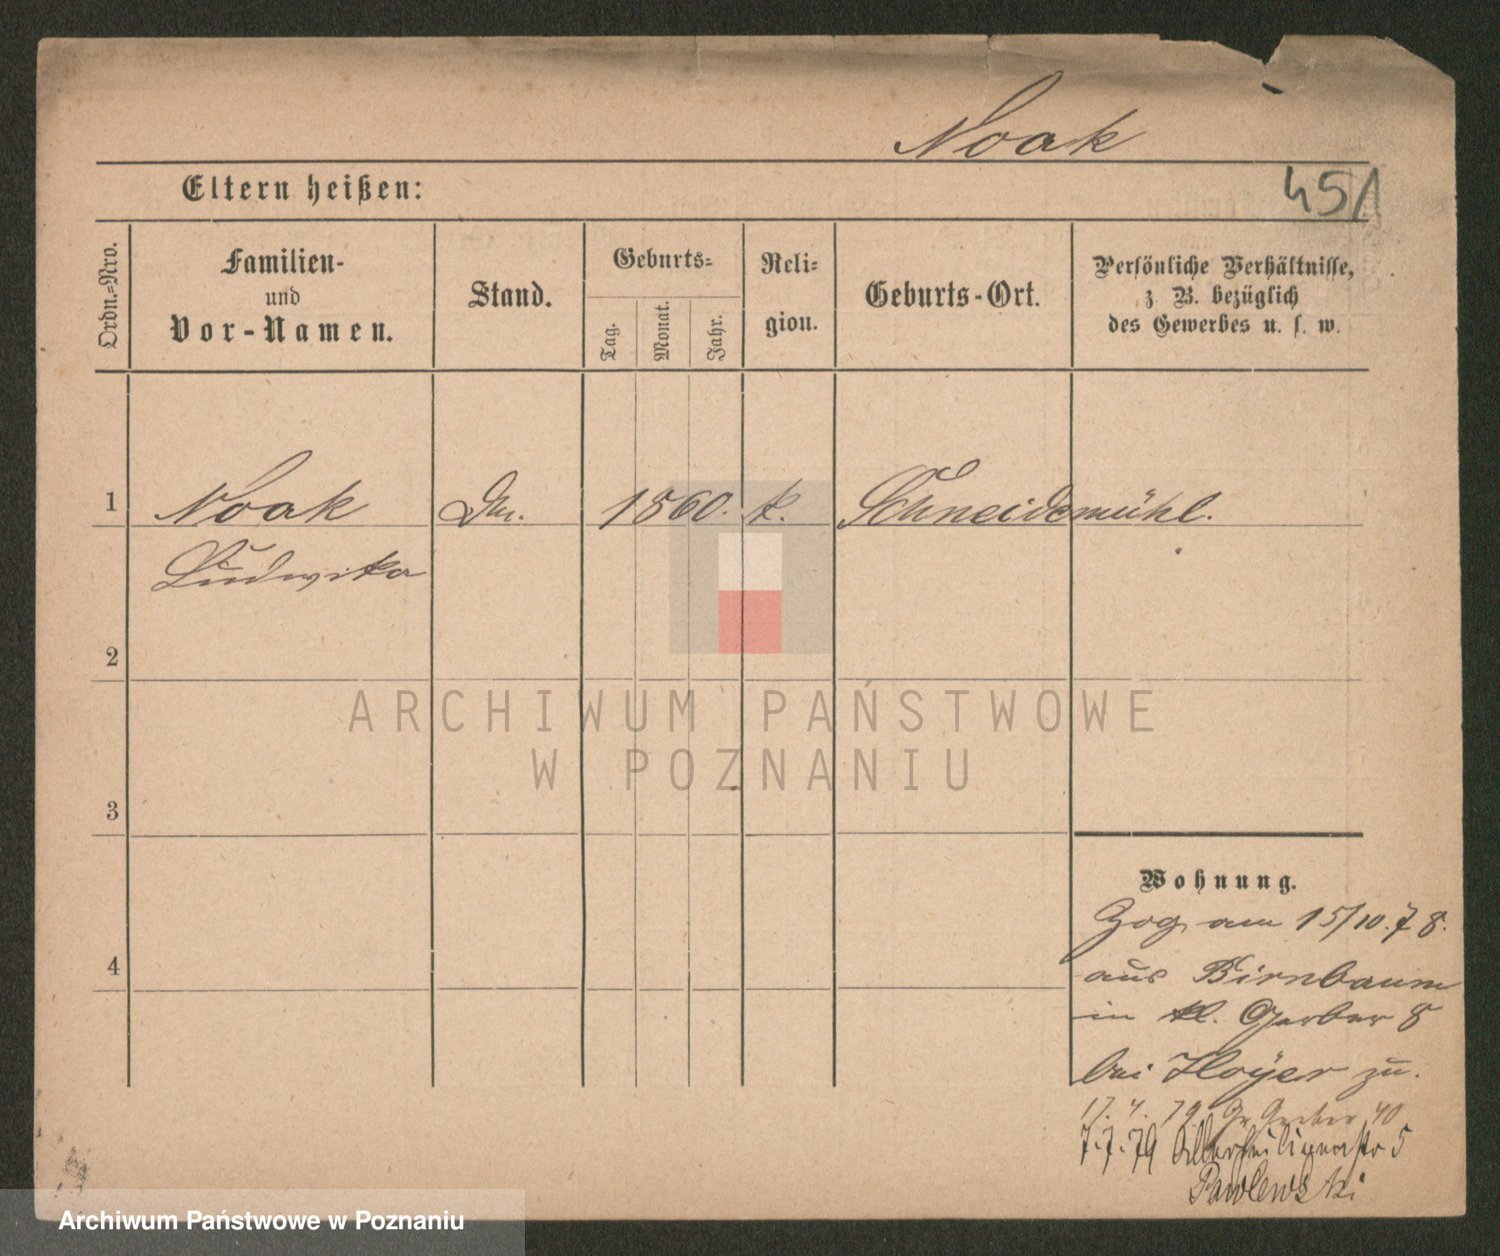 Noak
Eltern heißen:
451
Ordn.-Nro.
Familien-
und
Vor-Namen.
Stand.
Geburts-
Tag.
Monat.
Jahr.
Reli-
gion.
Geburts-Ort.
Persönliche Verhältnisse,
z. B. bezüglich
des Gewerbes u. s. w.
1
Noak
Ludwika
1860.
k.
Schneidemühl.
2
3
4
ARCHIWUM PAŃSTWOWE
W POZNANIU
Wohnung.
Zog am 15/10.78.
aus Birnbaum
in kl. Gerber 8
bei Hoyer zu.
17. 4. 79. Gr Gerber 40
7.7.79 Allerheiligenstr 5
Pawlewski
Archiwum Państwowe w Poznaniu